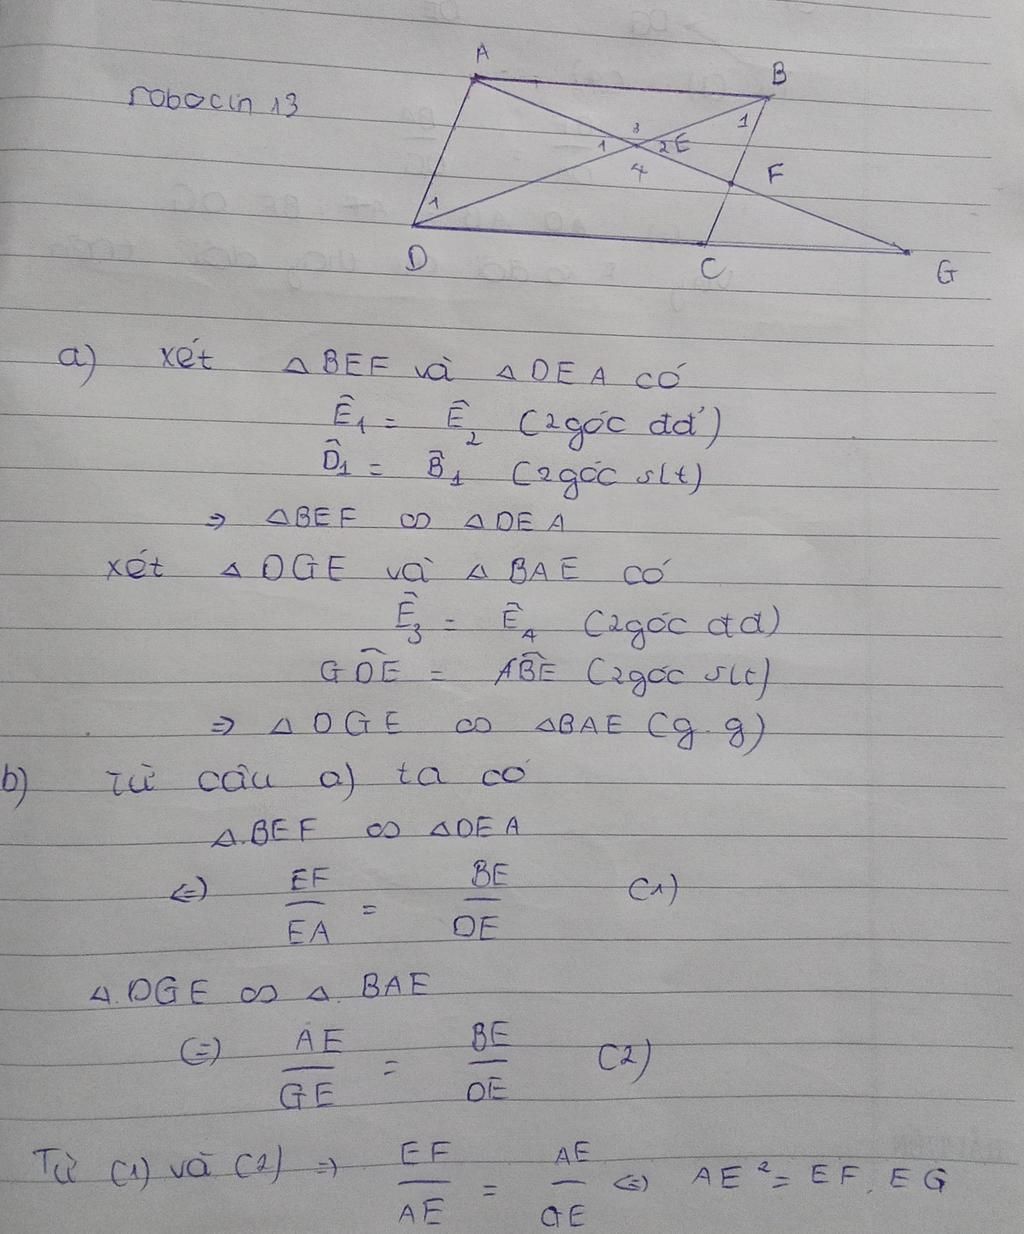 robocin 13
A
B
1
3
1
2 E
4
F
1
D
C
G
a) xét △BEF và △DEA có
Ê₁ = Ê₂ (2góc đđ)
D̂₁ = B̂₁ (2góc slt)
⇒ △BEF ∞ △DEA
xét △DGE và △BAE có
Ê₃ = Ê₄ (2góc đđ)
GD̂E = AB̂E (2góc slt)
⇒ △DGE ∞ △BAE (g.g)
b) Từ câu a) ta có
△.BEF ∞ △DEA
⇔ EF/EA = BE/DE (1)
△.DGE ∞ △.BAE
⇔ AE/GE = BE/DE (2)
Từ (1) và (2) ⇒ EF/AE = AE/GE ⇔ AE² = EF.EG